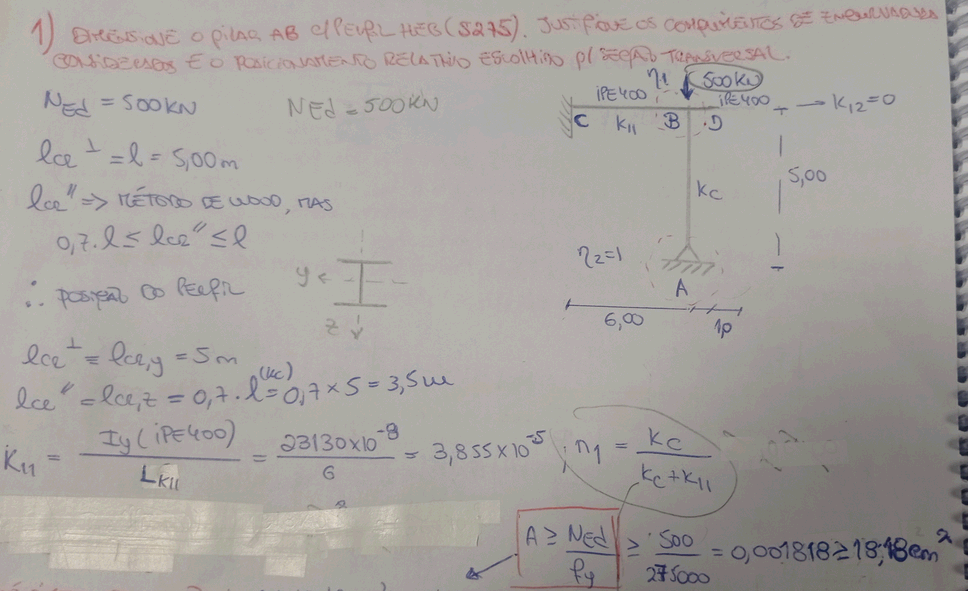 1) DIMENSIONE O PILAR AB C/ PERFIL HEB (S275). JUSTIFIQUE OS COMPRIMENTOS DE ENCURVADURA
CONSIDERADOS E O POSICIONAMENTO RELATIVO ESCOLHIDO P/ SECÇÃO TRANSVERSAL.
NEd = 500KN
NEd = 500KN
lce⊥ = l = 5,00m
lce'' => MÉTODO DE WOOD, MAS
0,7.l ≤ lce'' ≤ l
∴ POSIÇÃO DO PERFIL
y
z
η1
500KN
iPE400
iPE400
K12=0
C
K11
B
D
KC
5,00
η2=1
A
6,00
1,0
lce⊥ = lce,y = 5m
lce'' = lce,z = 0,7.l (KC) = 0,7×5 = 3,5m
K11 = Iy(iPE400) / LK11 = 23130×10⁻⁸ / 6 = 3,855×10⁻⁵ ; η1 = KC / (KC + K11)
A ≥ NEd / fy ≥ 500 / 275000 = 0,001818 ≥ 18,18cm²